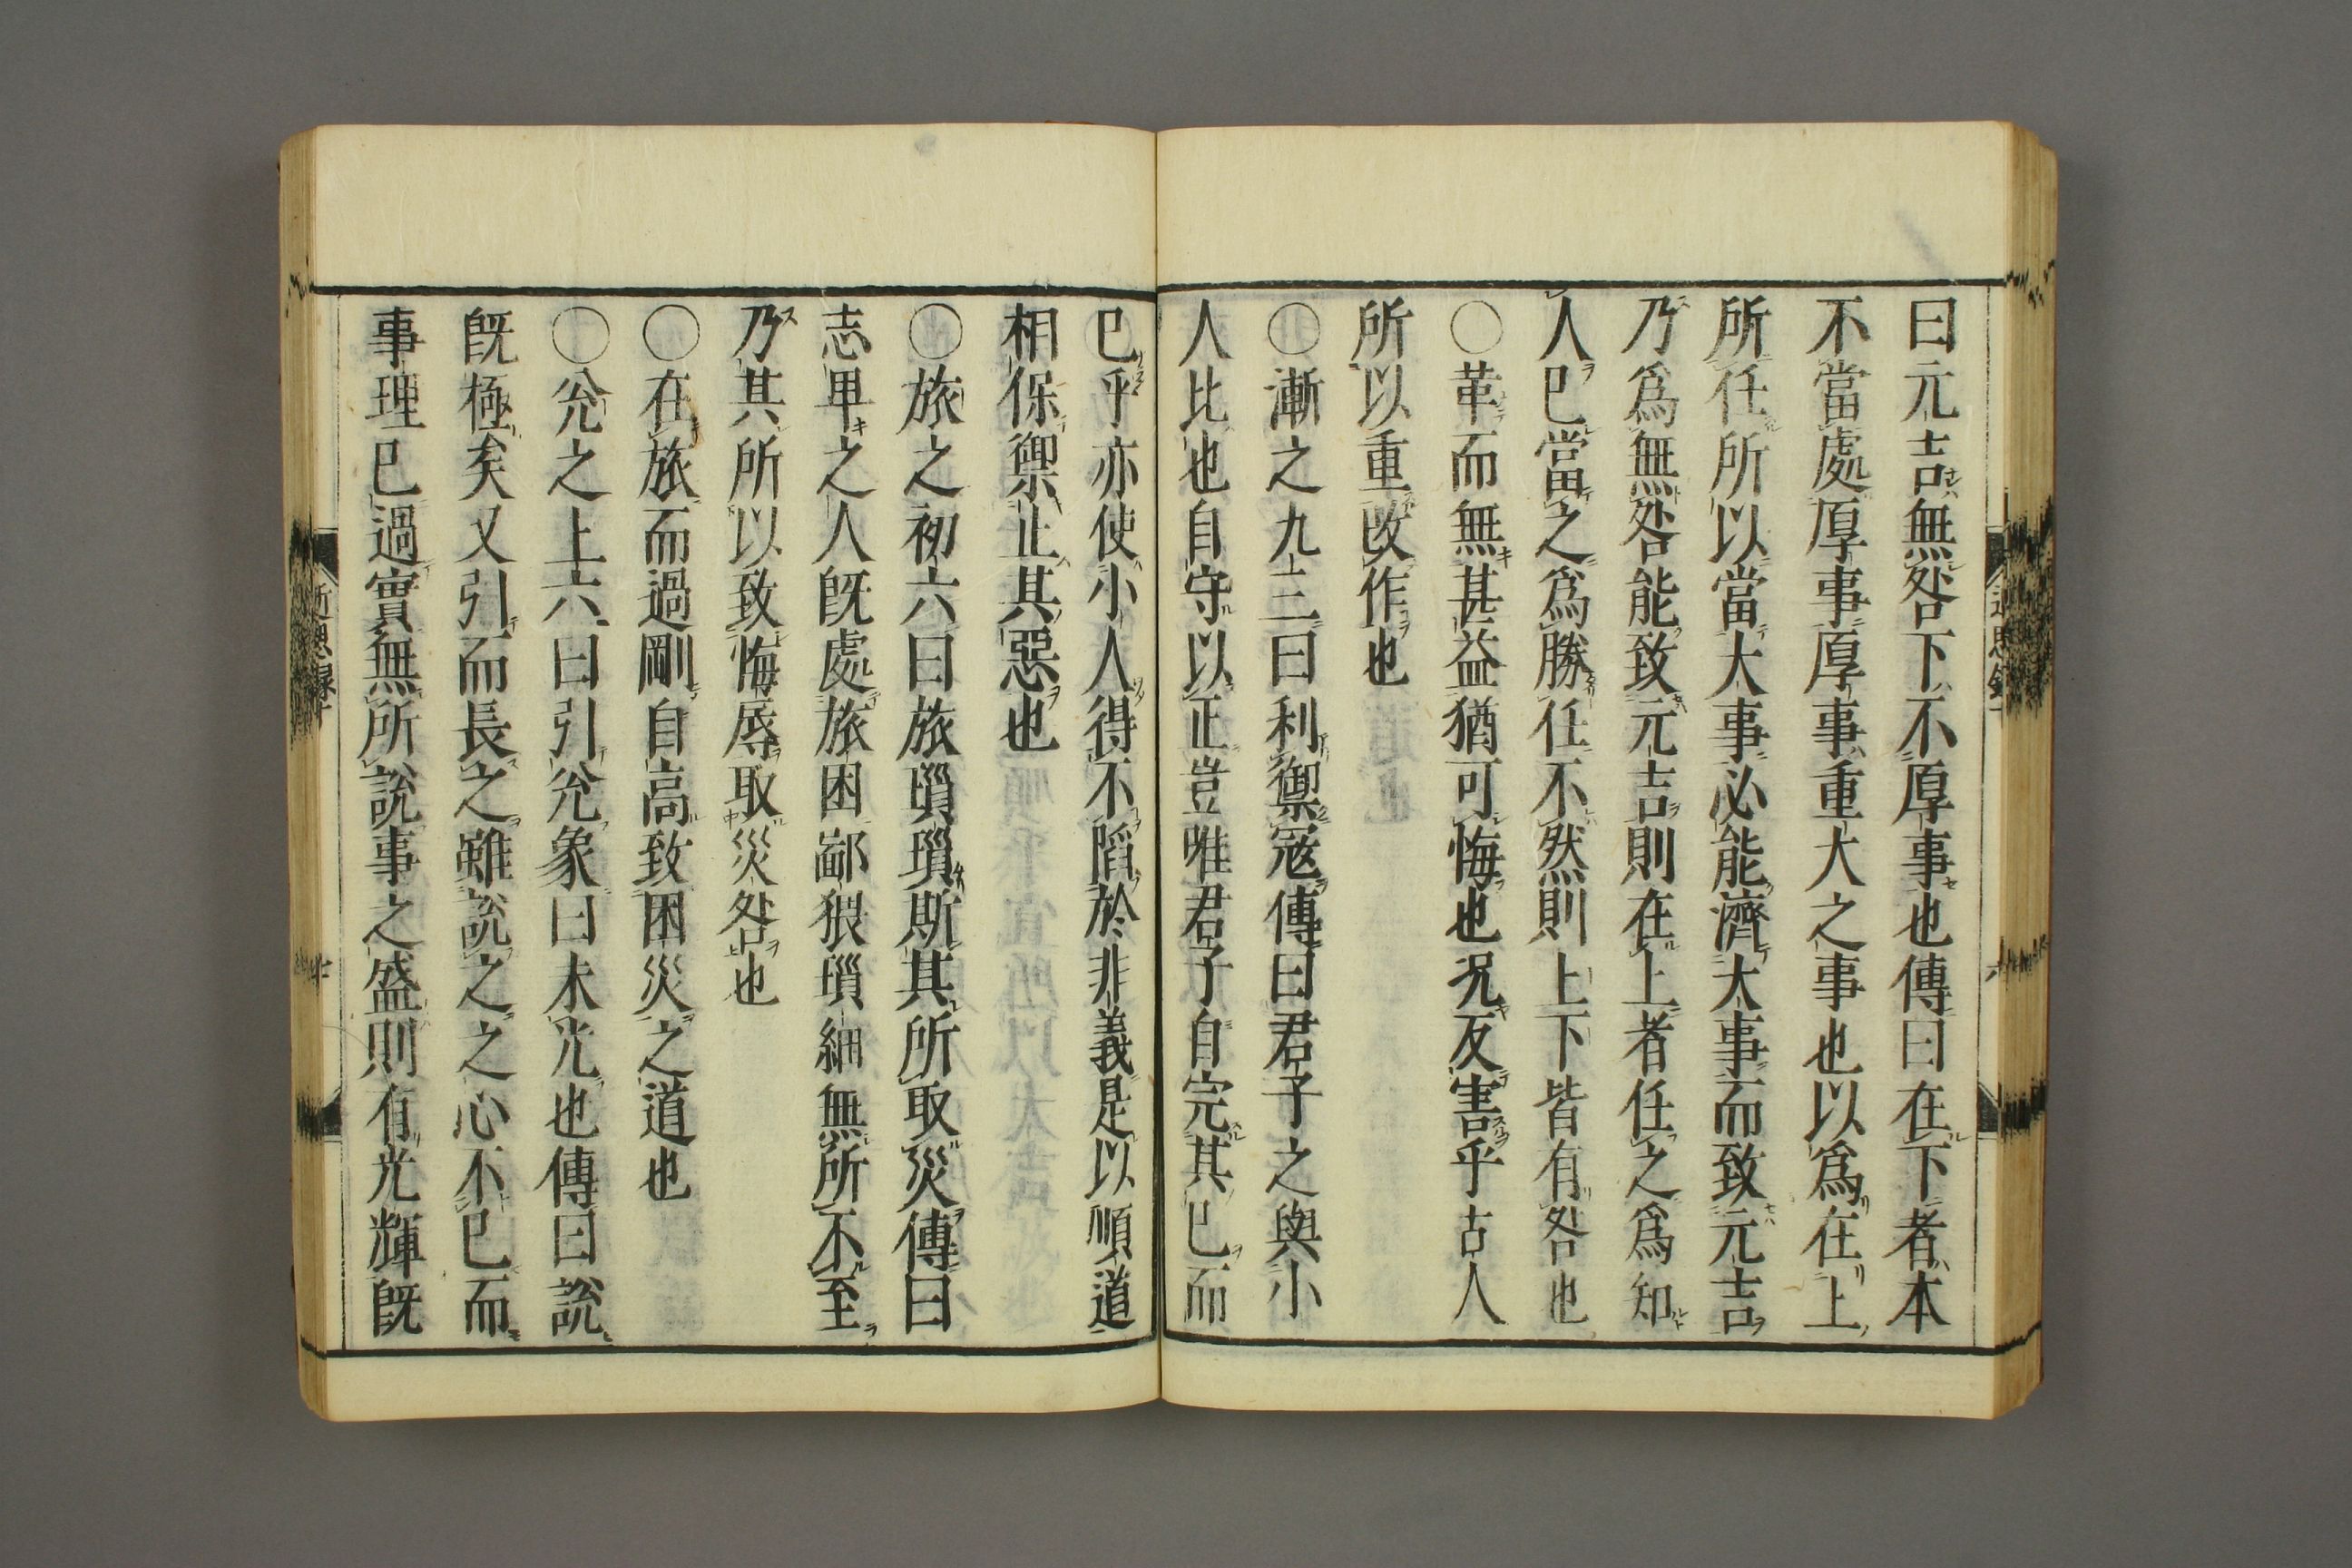 曰元吉無咎下不厚事也傳曰在下者本
不當處厚事厚事重大之事也以爲在上
所任所以當大事必能濟大事而致元吉
乃爲無咎能致元吉則在上者任之爲知
人已當之爲勝任不然則上下皆有咎也
〇革而無甚益猶可悔也况反害乎古人
所以重改作也
〇漸之九三曰利禦寇傳曰君子之與小
人比也自守以正豈唯君子自完其已而
已乎亦使小人得不陷於非義是以順道
相保禦止其惡也
〇旅之初六曰旅瑣瑣斯其所取災傳曰
志卑之人旣處旅困鄙猥瑣細無所不至
乃其所以致悔辱取災咎也
〇在旅而過剛自高致困災之道也
〇兊之上六曰引兊象曰未光也傳曰說
旣極矣又引而長之雖說之之心不已而
事理已過實無所說事之盛則有光輝旣
近思錄十
七